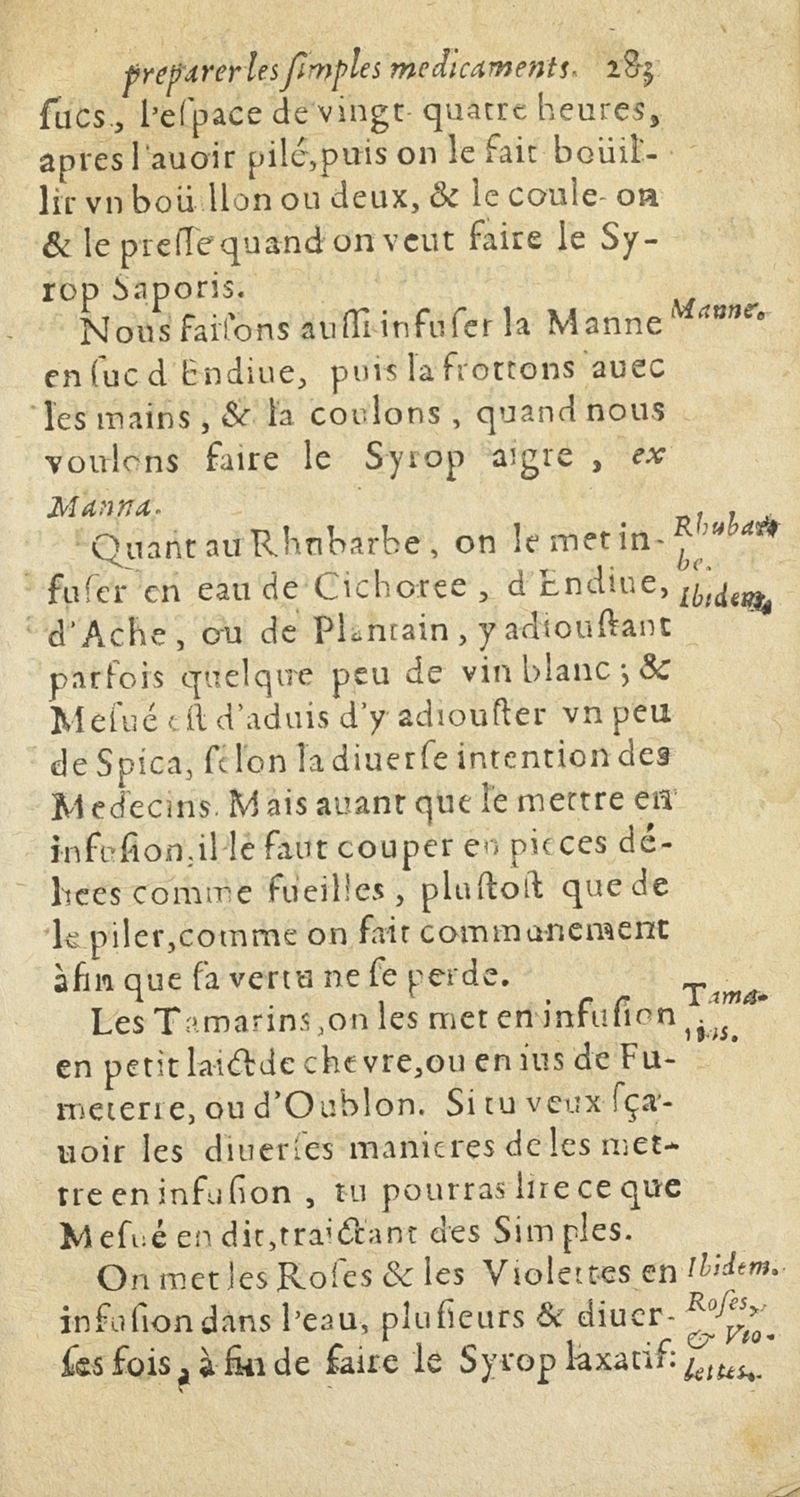 preparer les ſimples medicaments. 283
ſucs, l'eſpace de vingt-quatre heures,
apres l'auoir pilé, puis on le fait boüil-
lir vn boüillon ou deux, & le coule-on
& le preſſe quand on veut faire le Sy-
rop Saporis.
Nous faiſons auſſi infuſer la Manne
Manne.
en ſuc d'Endiue, puis la frottons auec
les mains, & la coulons, quand nous
voulons faire le Syrop aigre, ex
Manna.
Quant au Rhubarbe, on le met in-
Rhubar
be.
fuſer en eau de Cichoree, d'Endiue,
Ibidem.
d'Ache, ou de Plantain, y adiouſtant
parfois quelque peu de vin blanc; &
Meſué eſt d'aduis d'y adiouſter vn peu
de Spica, ſelon la diuerſe intention des
Medecins. Mais auant que le mettre en
infuſion, il le faut couper en pieces dé-
liees comme fueilles, pluſtoſt que de
le piler, comme on fait communement
àfin que ſa vertu ne ſe perde.
Les Tamarins, on les met en infuſion
Tama-
rins.
en petit laict de chevre, ou en ius de Fu-
meterre, ou d'Oublon. Si tu veux ſça-
uoir les diuerſes manieres de les met-
tre en infuſion, tu pourras lire ce que
Meſué en dit, traictant des Simples.
On met les Roſes & les Violettes en
Ibidem.
infuſion dans l'eau, pluſieurs & diuer-
Roſes,
& Vio-
ſes fois, à fin de faire le Syrop laxatif:
lettes.